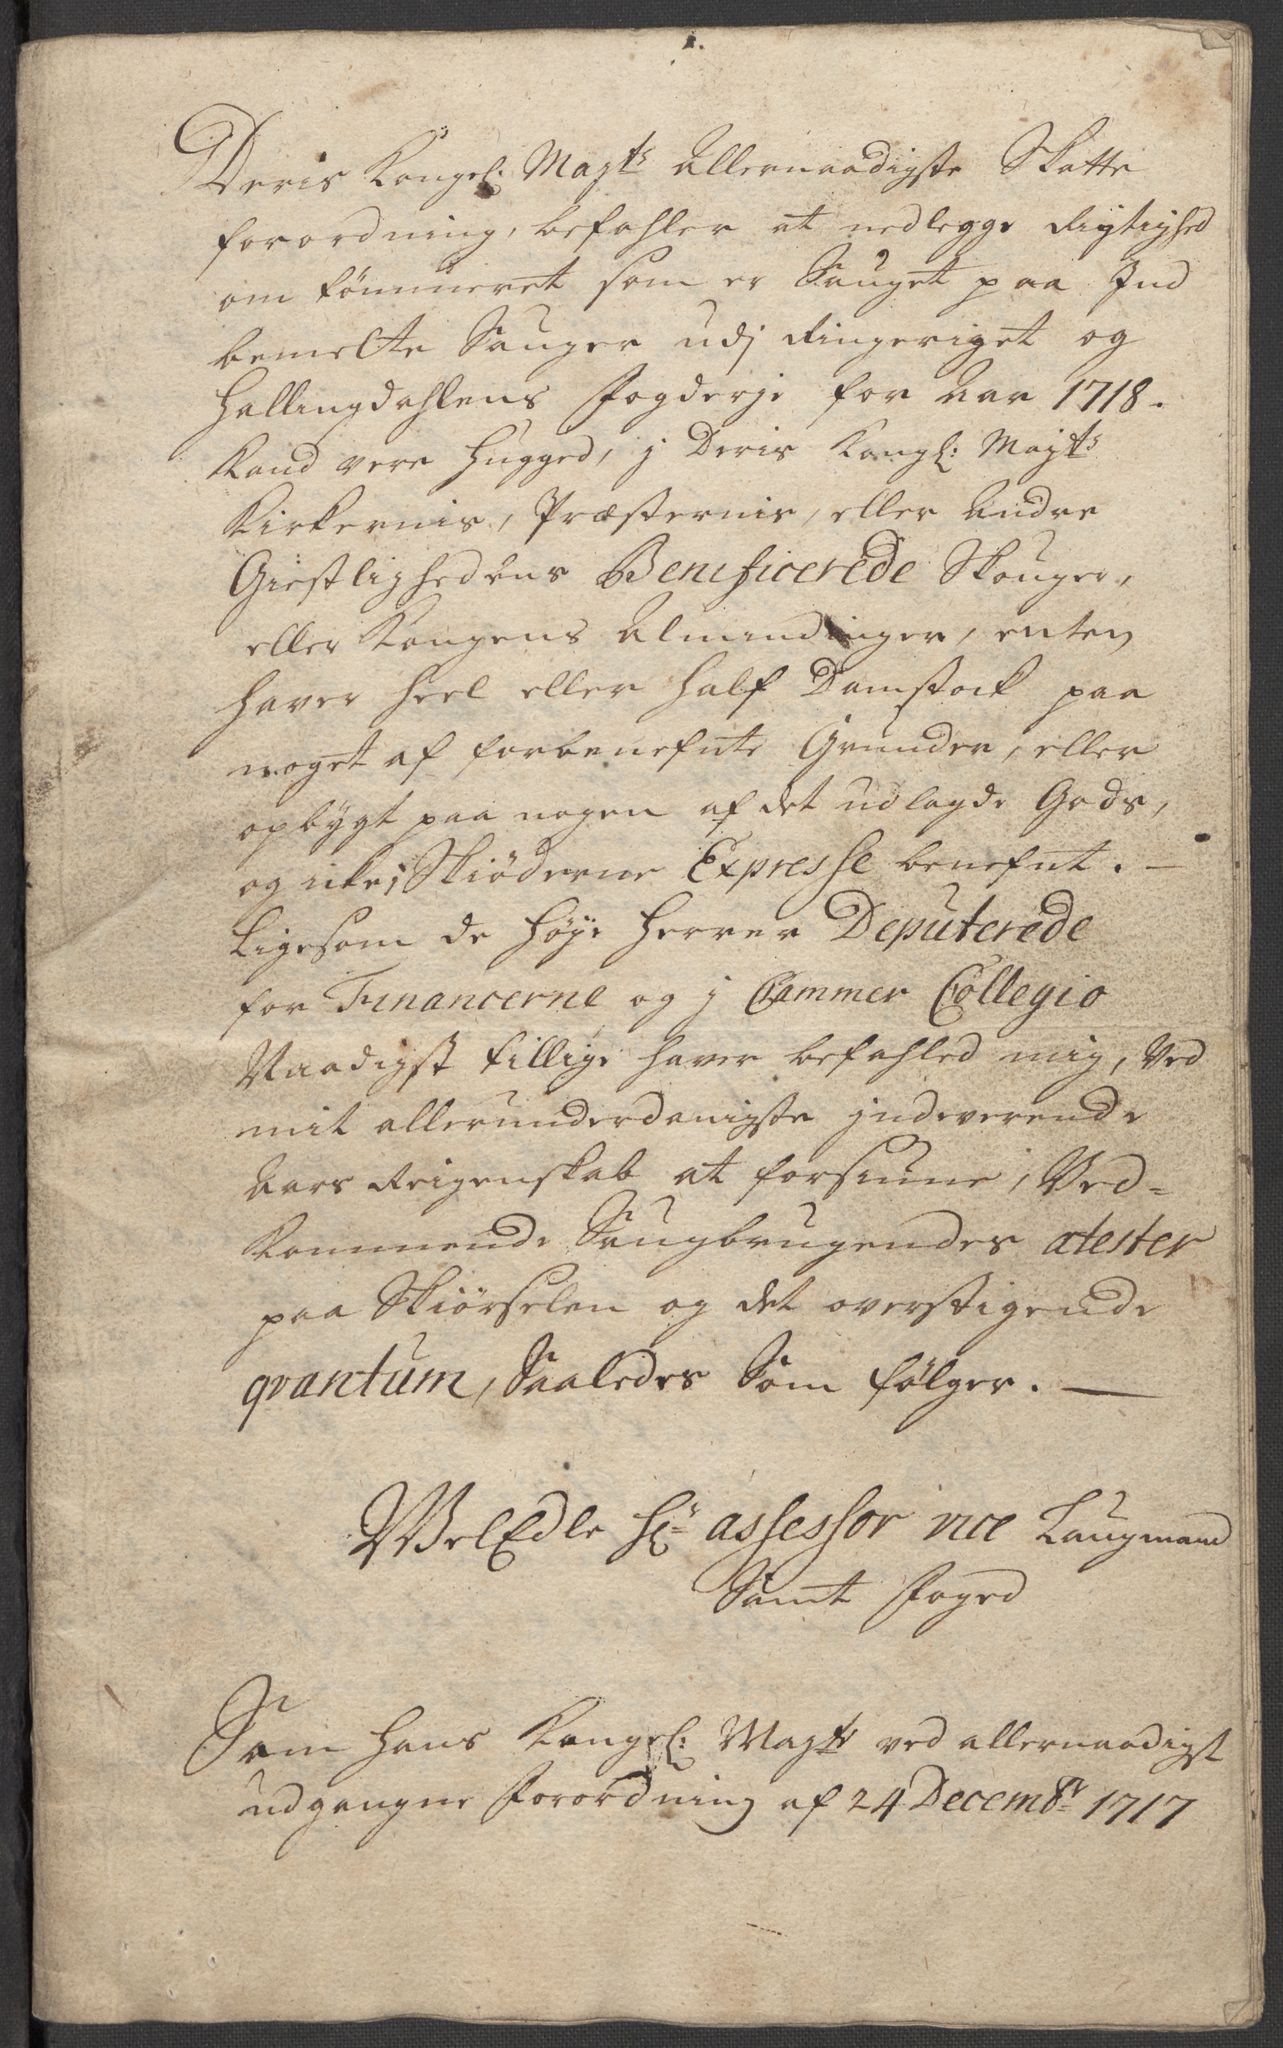 1.
Deris Kongel: Mayts Allernaadigste Skatte
forordning, befahler at nedlegge Rigtighed
om tømmeret som er Sauget paa Ind
bemelte Sauger udj Ringeriget og
Hallingdahlens Fogderje for Aar 1718.
Kand vere Hugged, j Deris Kongl: Mayts
Kirkernis, Præsternis, eller Andre
Giestlighedens Benificerede Skouger,
eller Kongens Almindinger, enten
haver heel eller half Damstock paa
noget af forbenefnte Grunder, eller
opbygt paa nogen af det udlagde Gods,
og icke j Skiøderne Expresse benefnt. —
Ligesom de Høye Herrer Deputerede
for Financerne og j Cammer Collegio
Naadigst tillige haver befahled mig, Ved
mit allerunderdanigste jndeverende
Aars Reigenskab at forsiune, Ved=
Kommende Saugbrugendes atester
paa Skiørselen og det overstigende
qvantum, Saaledes Som følger. —
WelEdle Hr: assessor vice Laugmand
Samt Foged
Som Hans Kongel: Mayts ved allernaadigst
udgangne Forordning af 24 Decembr 1717